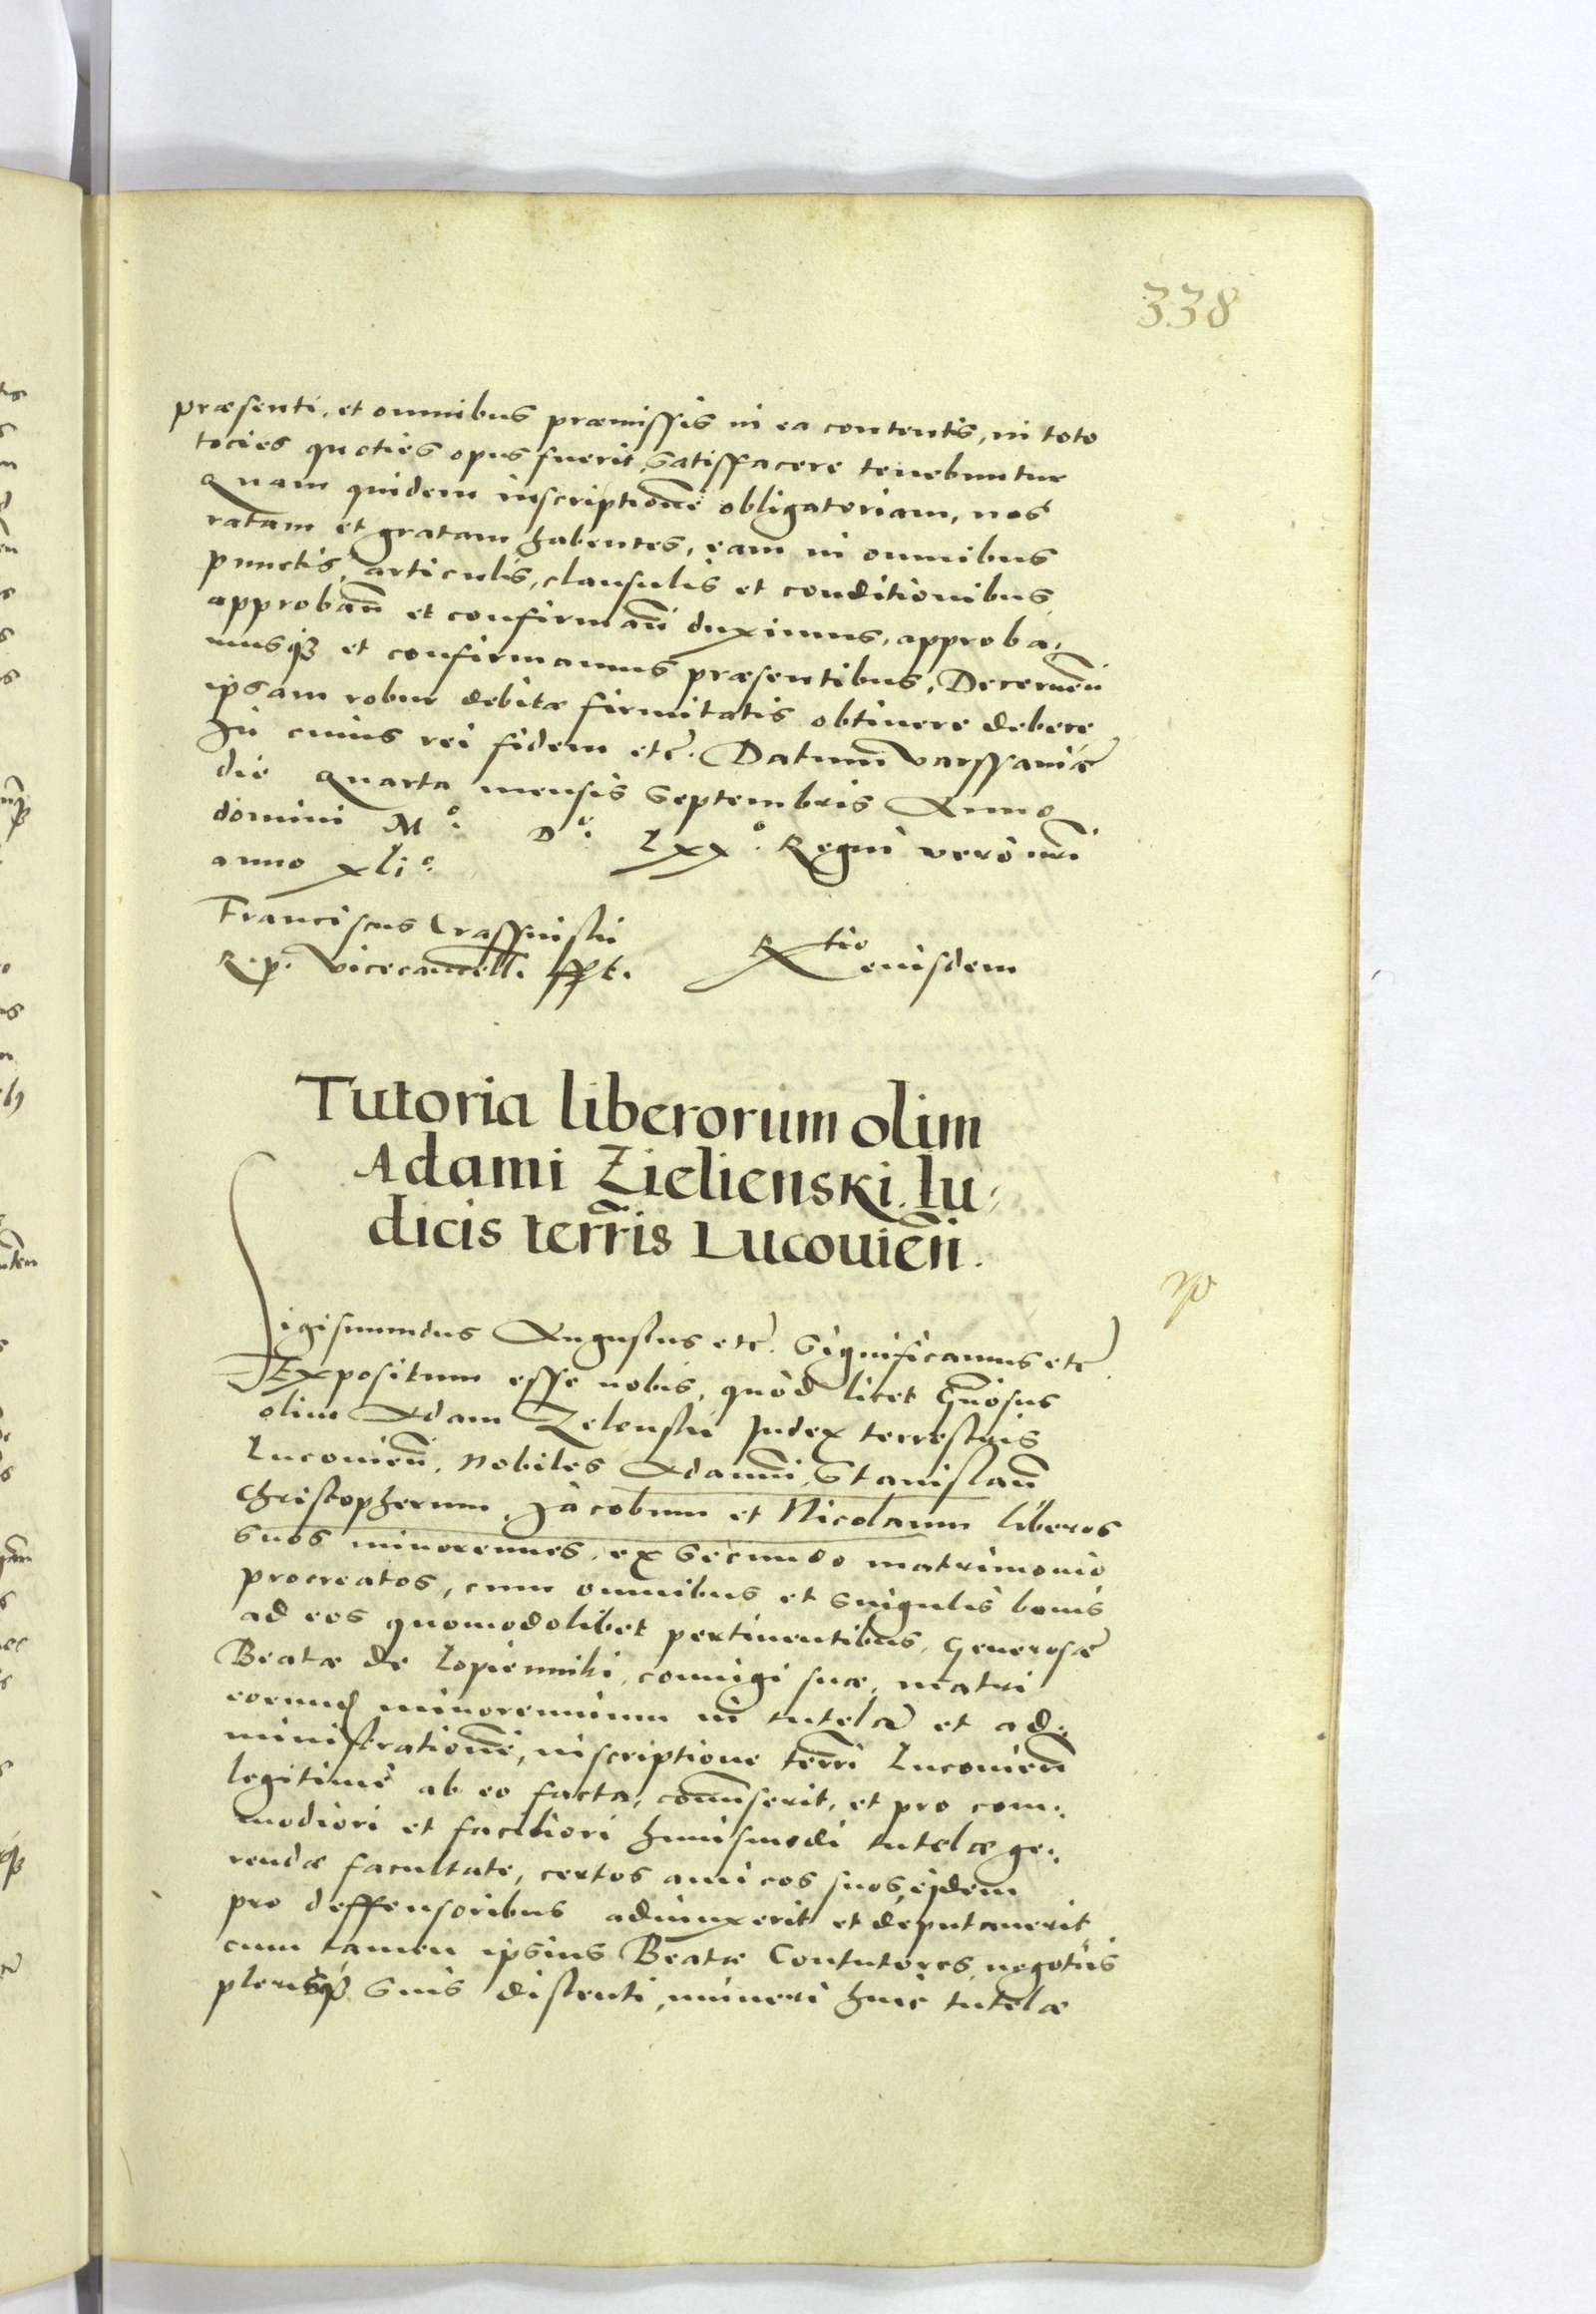 338
præsenti, et omnibus præmissis in ea contentis, in toto
tocies quoties opus fuerit satisfacere tenebuntur
Quam quidem inscriptionē obligatoriam, nos
ratam et gratam habentes, eam in omnibus
punctis, articulis, clausulis et conditionibus
approbañ et confirmañ duximus, approba,
musq3 et confirmamus præsentibus, Decerneñ
ipsam robur debitæ firmitatis obtinere debere
In cuius rei fidem etc̃. Datum Varssaviæ
die quarta mensis Septembris Anno
domini Mº. Dº. Lxxº. Regni vero nr̃i
anno xliº.
Franciscus Crassinski
R. p. Vicecancell. sspt.
Rtio eiusdem
Tutoria liberorum olim
Adami Zielienski. Iu,
dicis terr̃is Lucouieñ.
Sigismundus Augustus etc̃. Significamus etc̃.
Expositum esse nobis, quòd licet Gñosus
olim Adam Zelenski Judex terrestris
Lucouieñ, Nobiles Adamũ, Stanislaũ
Christopherum, Jacobum et Nicolaum liberos
suos minorennes, ex secundo matrimonio
procreatos, cum omnibus et singulis bonis
ad eos quomodolibet pertinentibus, Generosæ
Beatæ de Lopienniki, coniugi suæ, matri
eorund minorennium in tutelã et ad,
ministrationē, inscriptione terr̃i Lucouieñ
legitimè ab eo facta, com̃iserit, et pro com,
modiori et faciliori huiusmodi tutelæ ge,
rendæ facultate, certos amicos suos, eidem
pro deffensoribus adiunxerit et deputauerit
cum tamen ipsius Beatæ Contutores, negotiis
plerisq3 suis distenti, muneri huic tutelæ